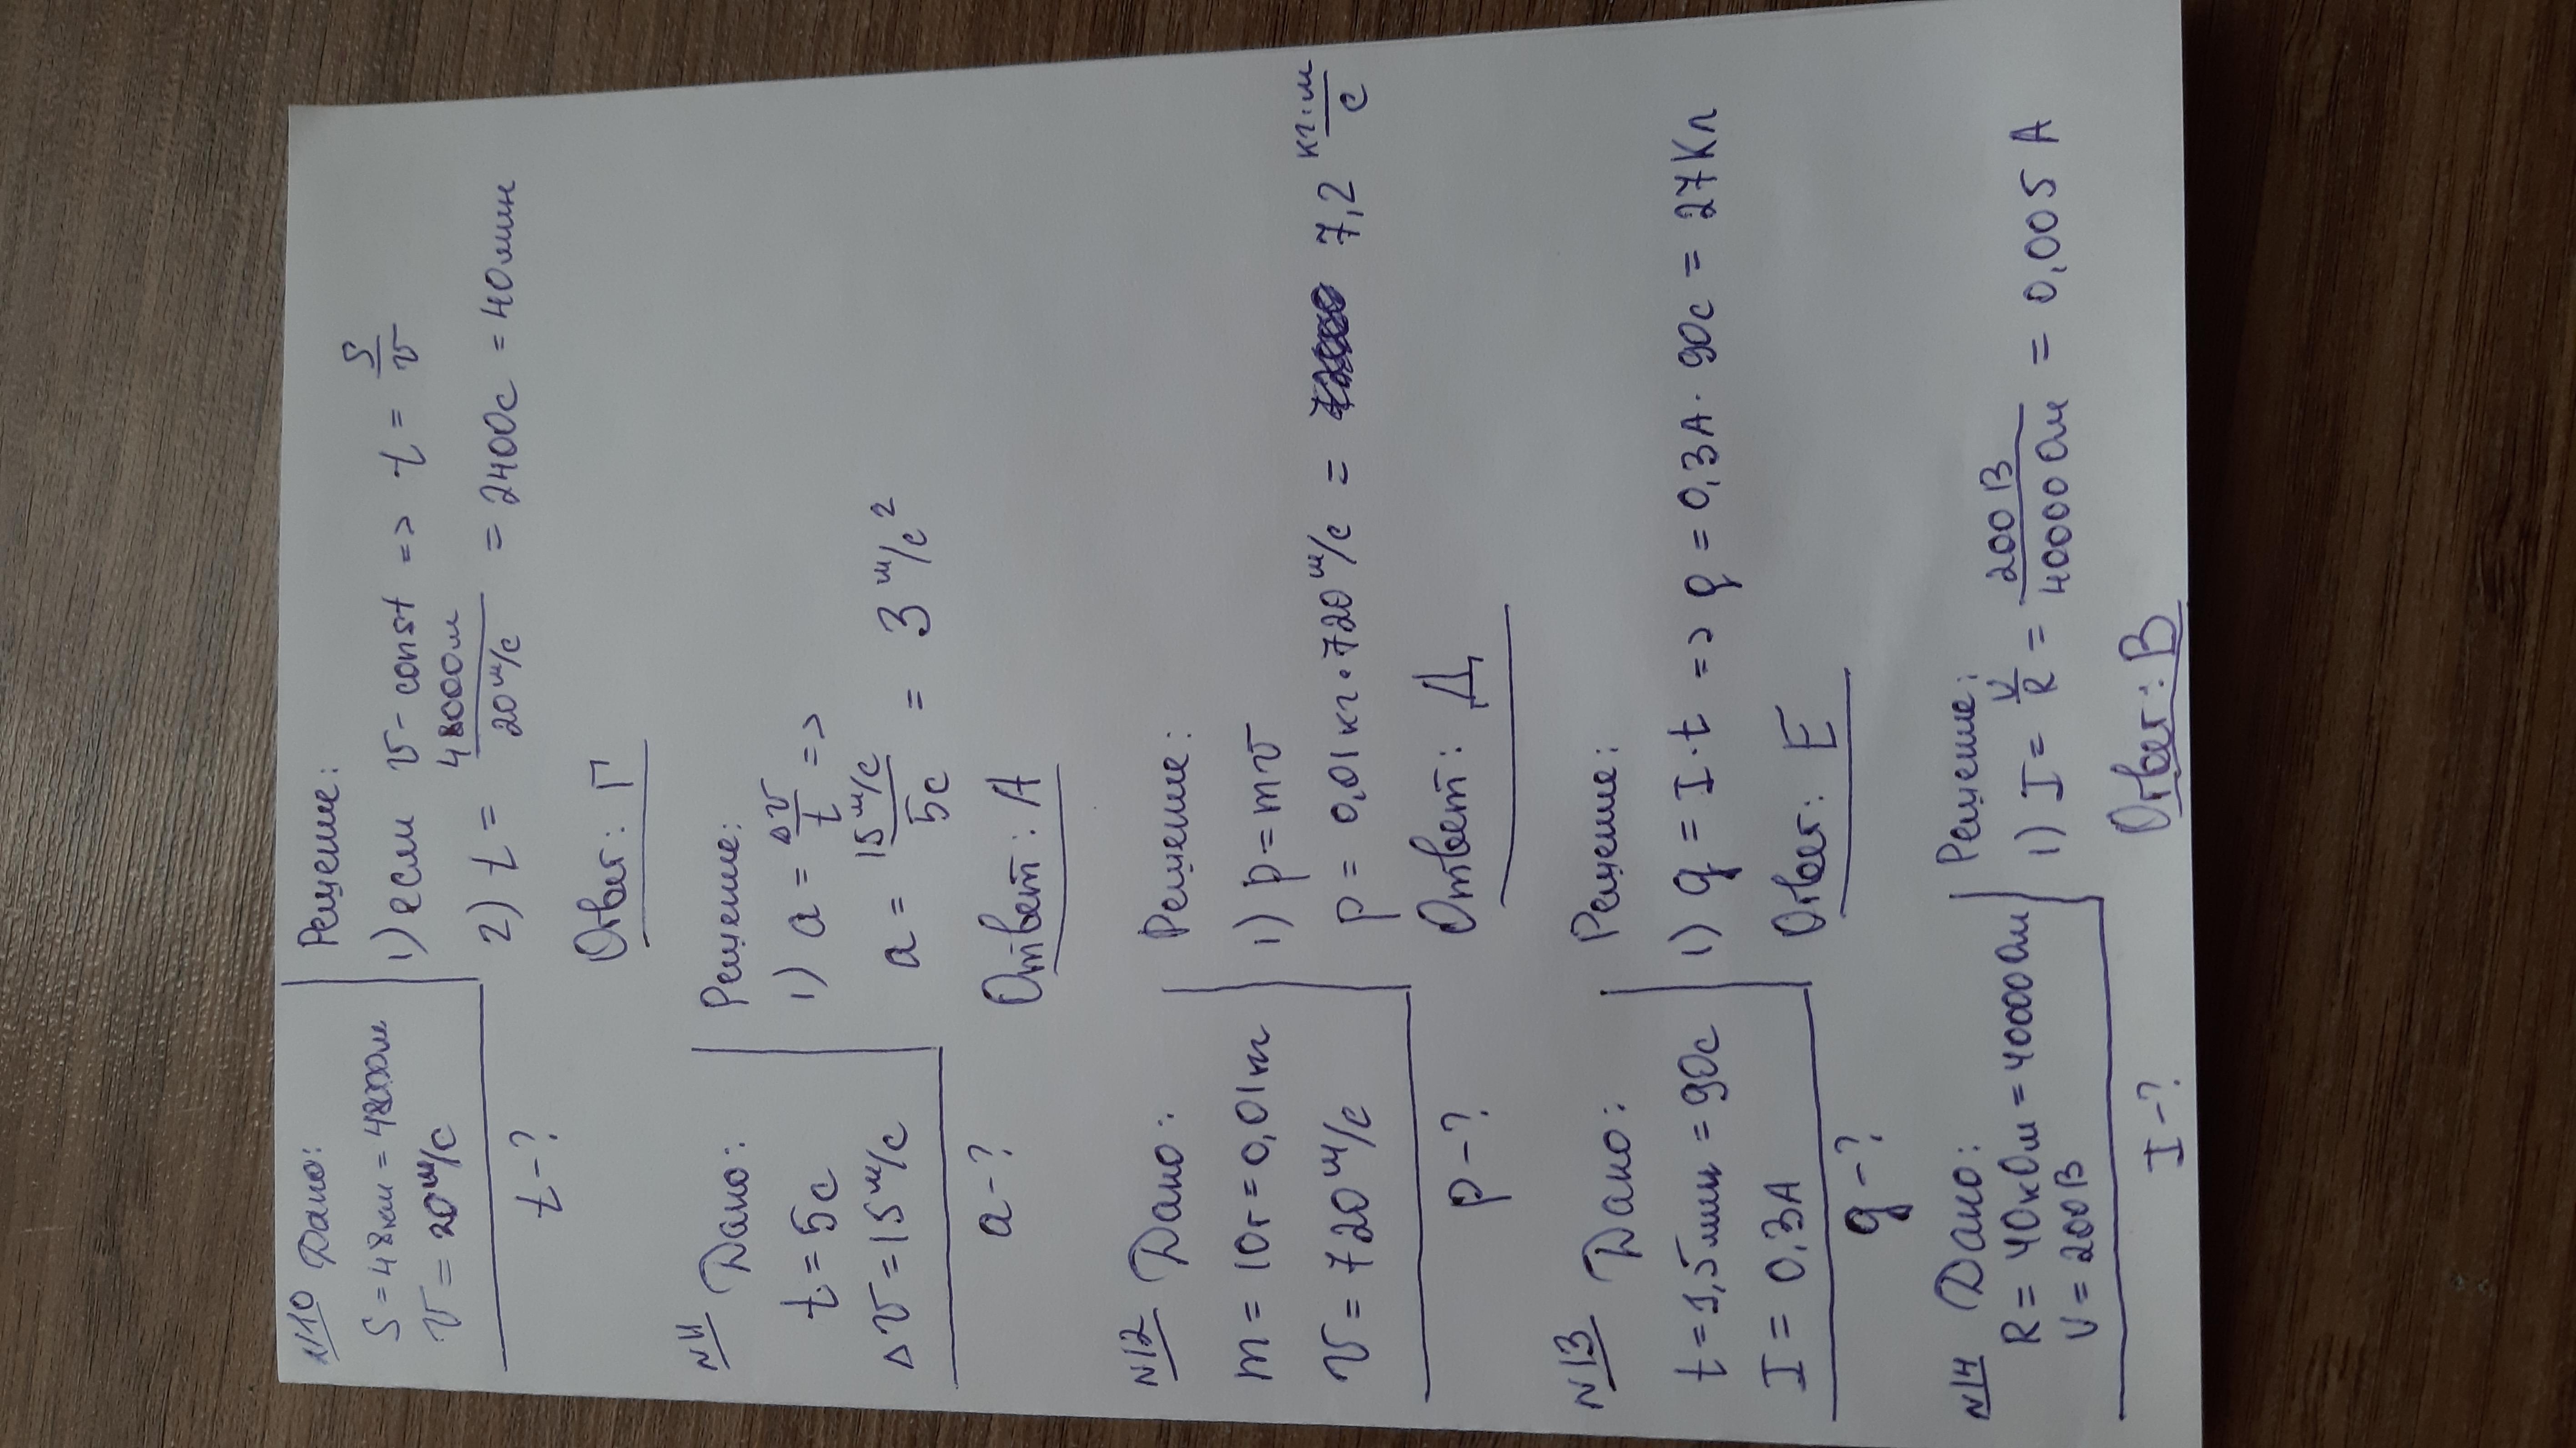 №10 Дано:
S = 48км = 48000м
v = 20 м/с
t - ?
Решение:
1) если v - const => t = S/v
2) t = 48000м / 20 м/с = 2400с = 40мин
Ответ: Г
№11 Дано:
t = 5с
Δv = 15 м/с
a - ?
Решение:
1) a = Δv/t =>
a = 15 м/с / 5с = 3 м/с²
Ответ: А
№12 Дано:
m = 10г = 0,01кг
v = 720 м/с
p - ?
Решение:
1) p = mv
p = 0,01кг · 720 м/с = 7,2 кг·м/с
Ответ: Д
№13 Дано:
t = 1,5мин = 90с
I = 0,3А
q - ?
Решение:
1) q = I · t => q = 0,3А · 90с = 27Кл
Ответ: Е
№14 Дано:
R = 40кОм = 40000Ом
U = 200В
I - ?
Решение:
1) I = U/R = 200В / 40000Ом = 0,005 А
Ответ: В